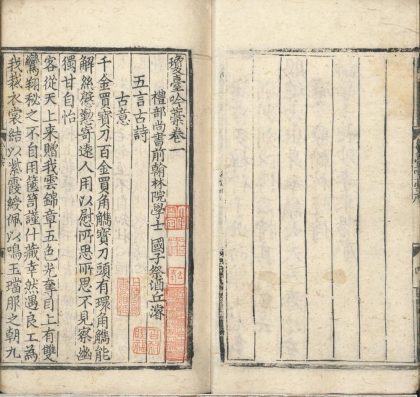 瓊臺吟藁卷一
禮部尚書前翰林院學士 國子祭酒丘濬
五言古詩
古意
千金買寶刀百金買角觿寶刀頭有環角觿能
解 寄遠人用以慰所思所思不見察幽
獨甘自怡
客從天上來贈我雲錦章五色光奪目上有雙
鸞翔秘之不自用篋笥謹什藏幸然遇良工為
我裁衣裳結以紫霞 佩以鳴玉璫那之朝九